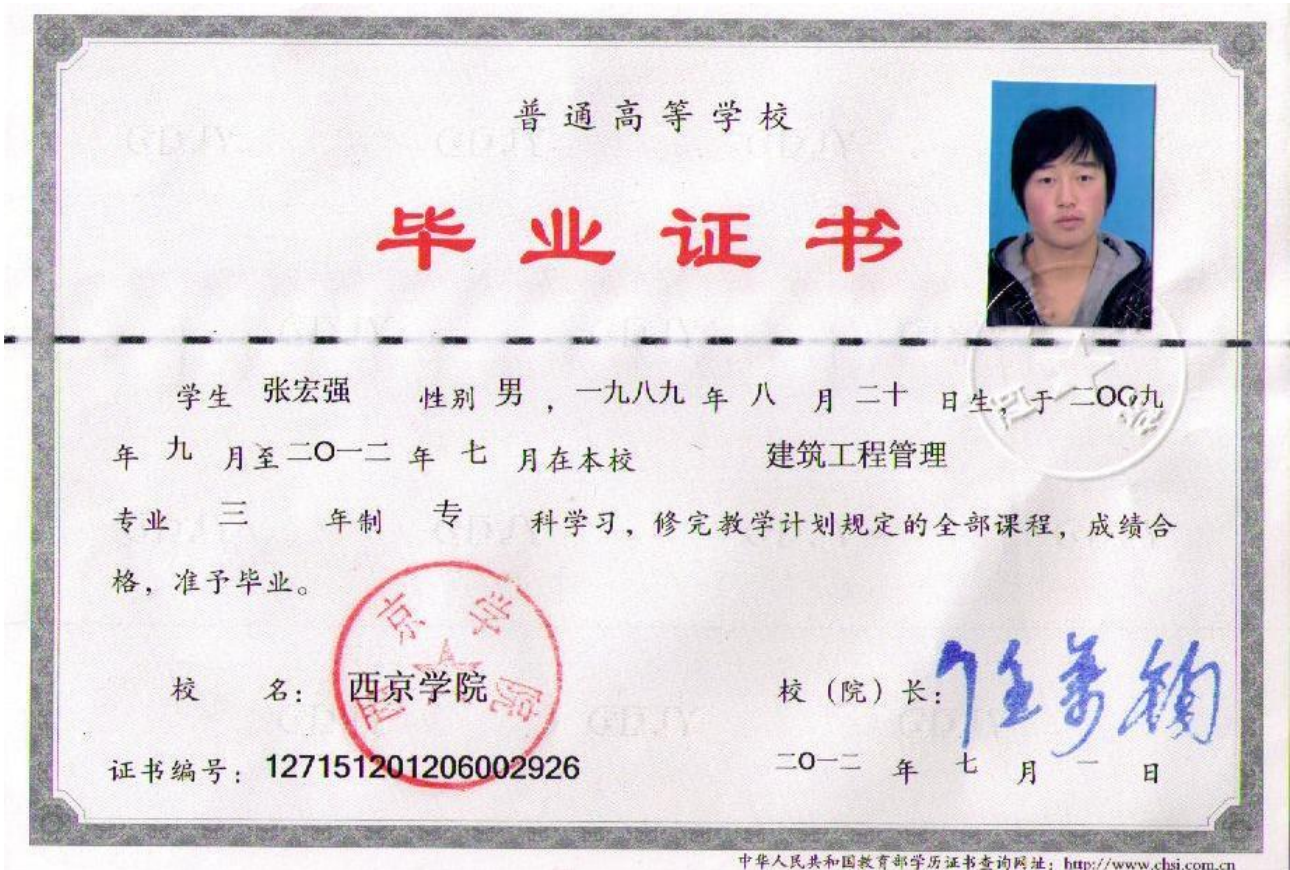 普通高等学校
毕业证书
学生 张宏强 性别 男 ，一九八九 年 八 月 二十 日生，于 二〇〇九
年 九 月至 二〇一二 年 七 月在本校 建筑工程管理
专业 三 年制 专 科学习，修完教学计划规定的全部课程，成绩合
格，准予毕业。
西京学院
校 名： 西京学院
校（院）长： 任万钧
证书编号： 127151201206002926
二〇一二 年 七 月 一 日
中华人民共和国教育部学历证书查询网址：http://www.chsi.com.cn